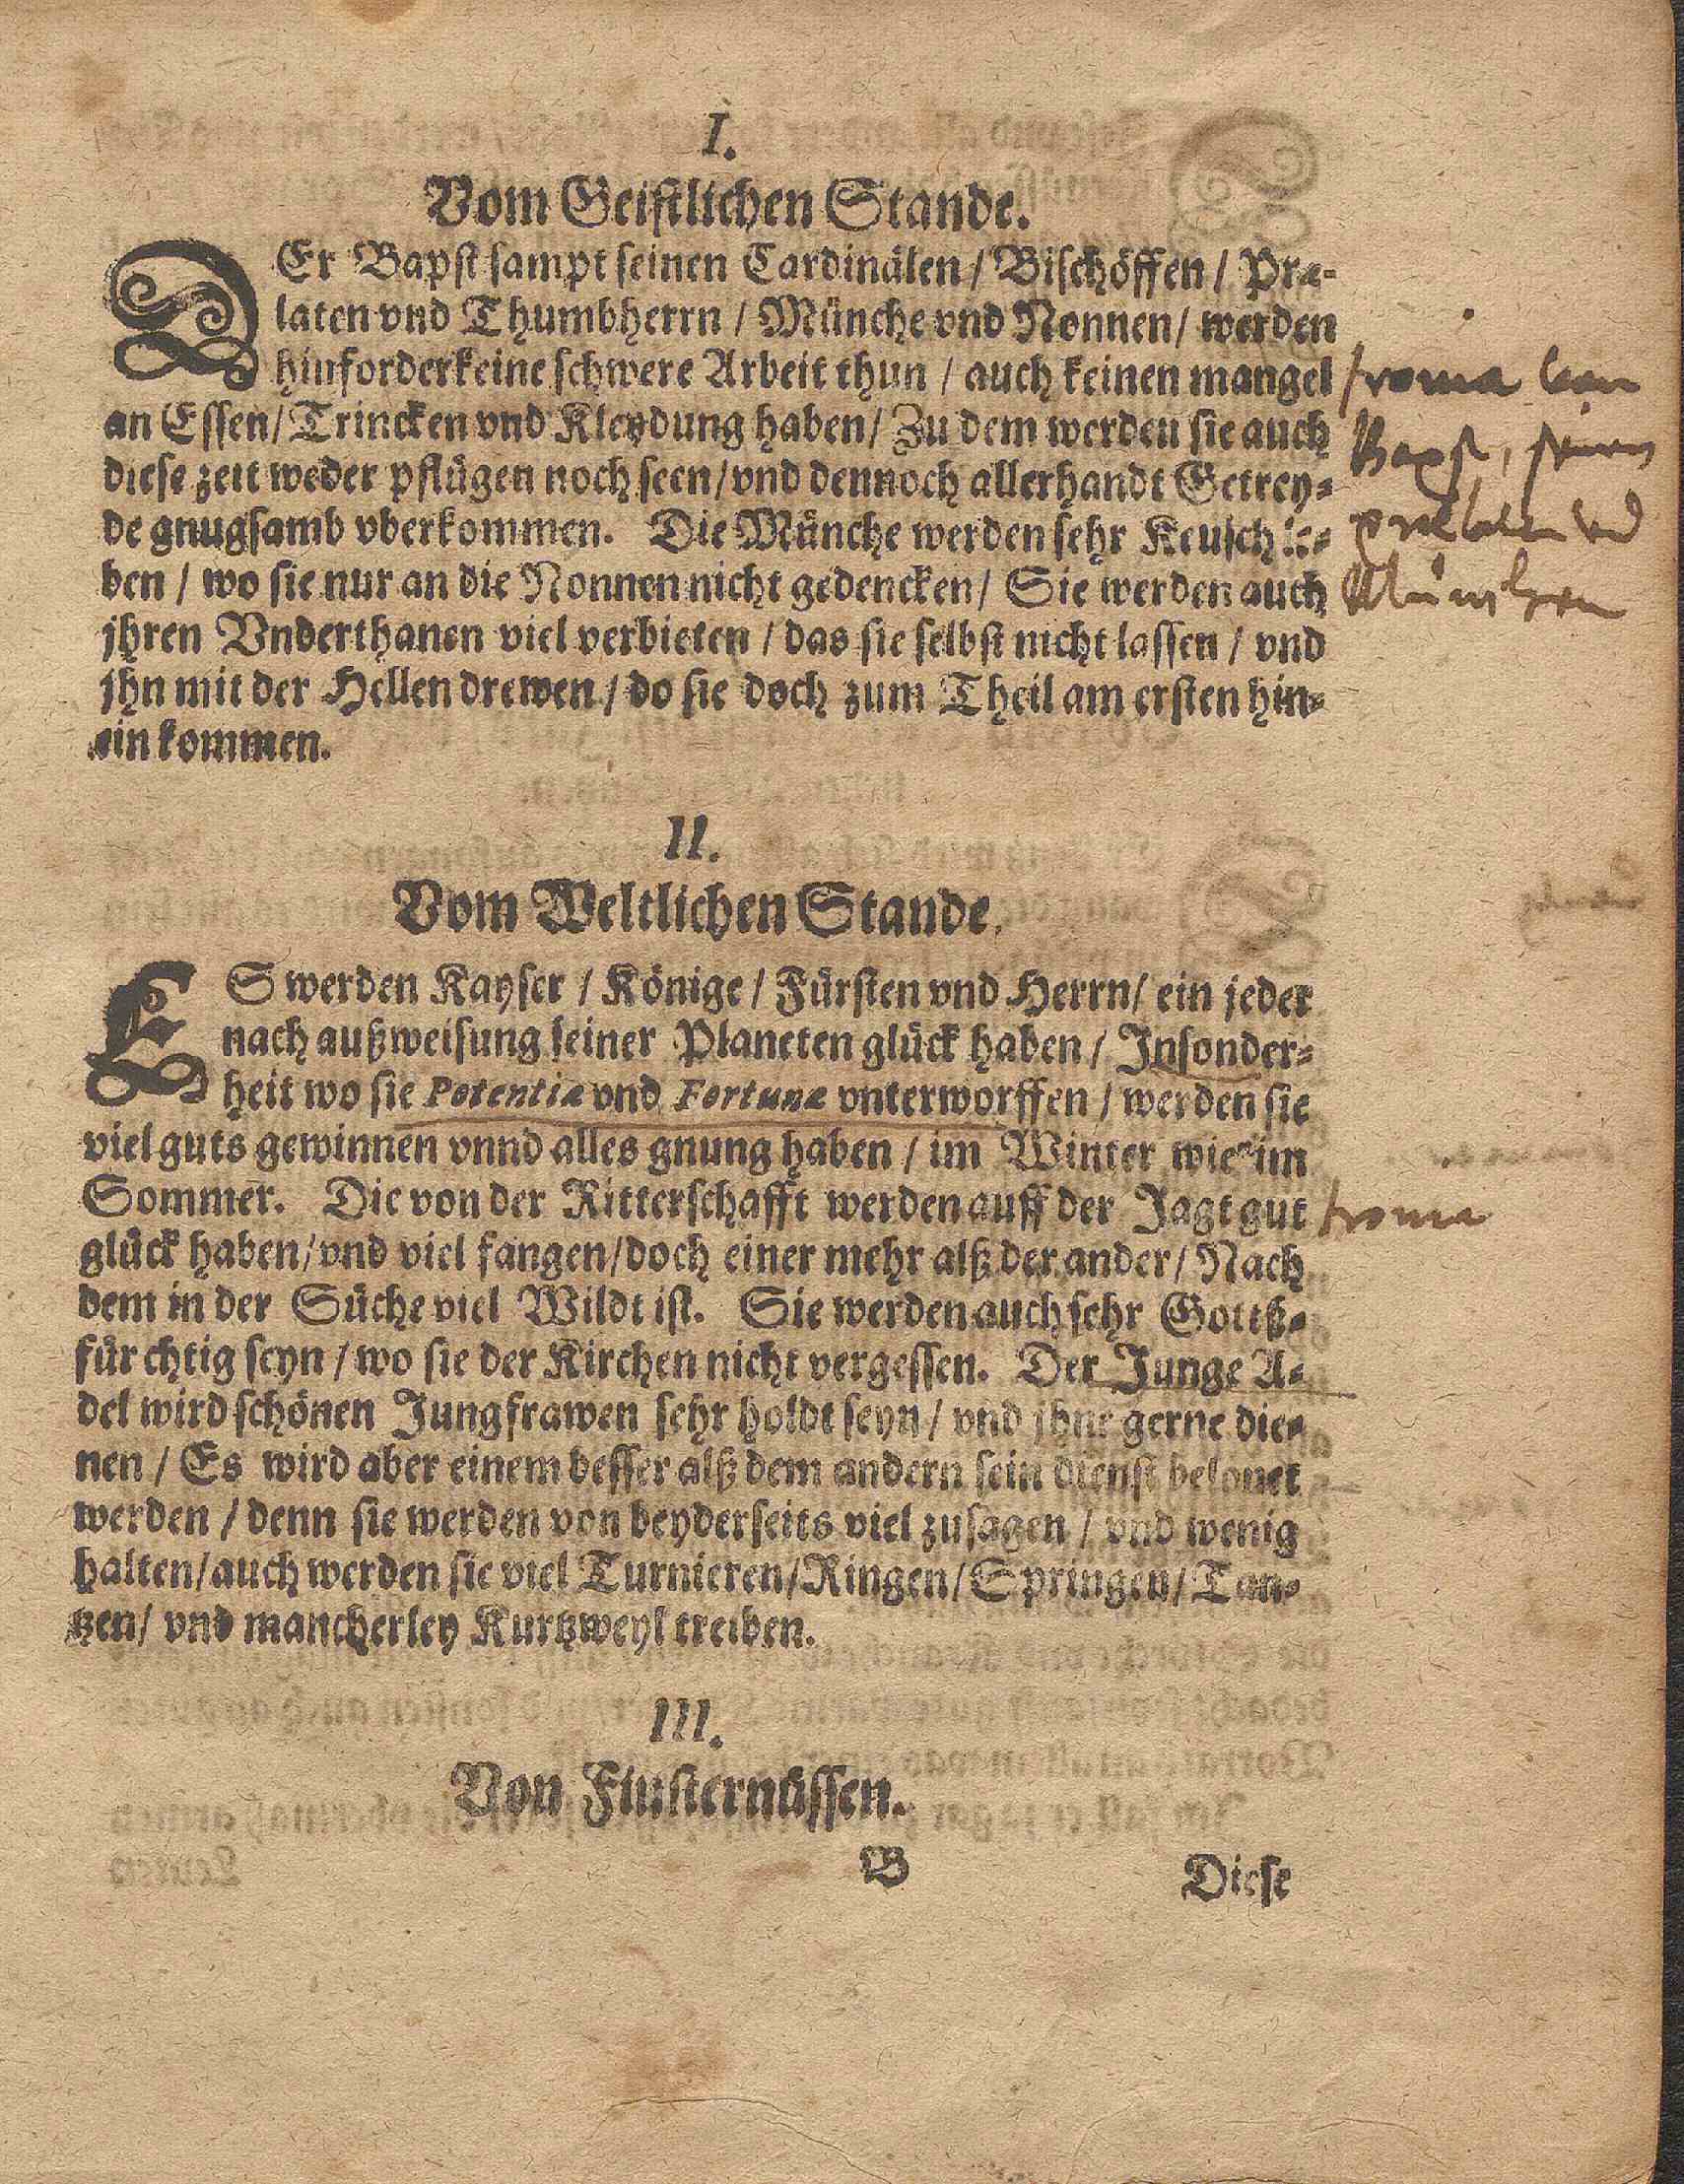 I.
Vom Geistlichen Stande.
DEr Bapst sampt seinen Cardinälen / Bischöffen / Præ-
laten vnd Thumbherrn / Münche vnd Nonnen / werden
hinforder keine schwere Arbeit thun / auch keinen mangel
an Essen / Trincken vnd Kleydung haben / Zu dem werden sie auch
diese zeit weder pflügen noch seen / vnd dennoch allerhandt Getrey-
de gnugsamb vberkommen. Die Münche werden sehr Keusch le-
ben / wo sie nur an die Nonnen nicht gedencken / Sie werden auch
jhren Vnderthanen viel verbieten / das sie selbst nicht lassen / vnd
jhn mit der Hellen drewen / do sie doch zum Theil am ersten hin-
ein kommen.
Bapst,
II.
Vom Weltlichen Stande.
ES werden Kayser / Könige / Fürsten vnd Herrn / ein jeder
nach außweisung seiner Planeten glück haben / Jnsonder-
heit wo sie Potentiæ vnd Fortunæ vnterworffen / werden sie
viel guts gewinnen vnnd alles gnung haben / im Winter wie im
Sommer. Die von der Ritterschafft werden auff der Jagt gut
glück haben / vnd viel fangen / doch einer mehr alß der ander / Nach
dem in der Süche viel Wildt ist. Sie werden auch sehr Gottß-
fürchtig seyn / wo sie der Kirchen nicht vergessen. Der Junge A-
del wird schönen Jungfrawen sehr holdt seyn / vnd jhnen gerne die-
nen / Es wird aber einem besser alß dem andern sein dienst belonet
werden / denn sie werden von beyderseits viel zusagen / vnd wenig
halten / auch werden sie viel Turnieren / Ringen / Springen / Tan-
tzen / vnd mancherley Kurtzweyl treiben.
III.
Von Finsternüssen.
B Diese